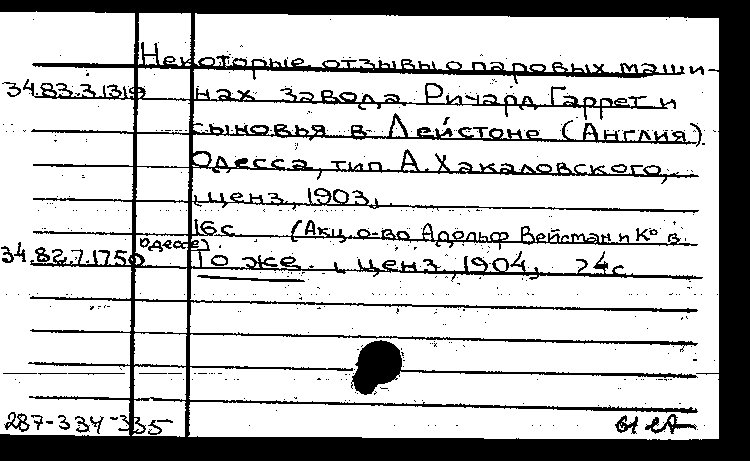 Некоторые отзывы о паровых маши-
34.83.3.1319 нах завода Ричард Гаррет и
сыновья в Лейстоне (Англия)
Одесса, тип А. Хакаловского,
ценз, 1903,
16 с. (Акц. о-во Адольф Вейсман и К° в
Одессе)
34.82.7.1750 То же., ценз, 1904, 24 с.
287-334-335